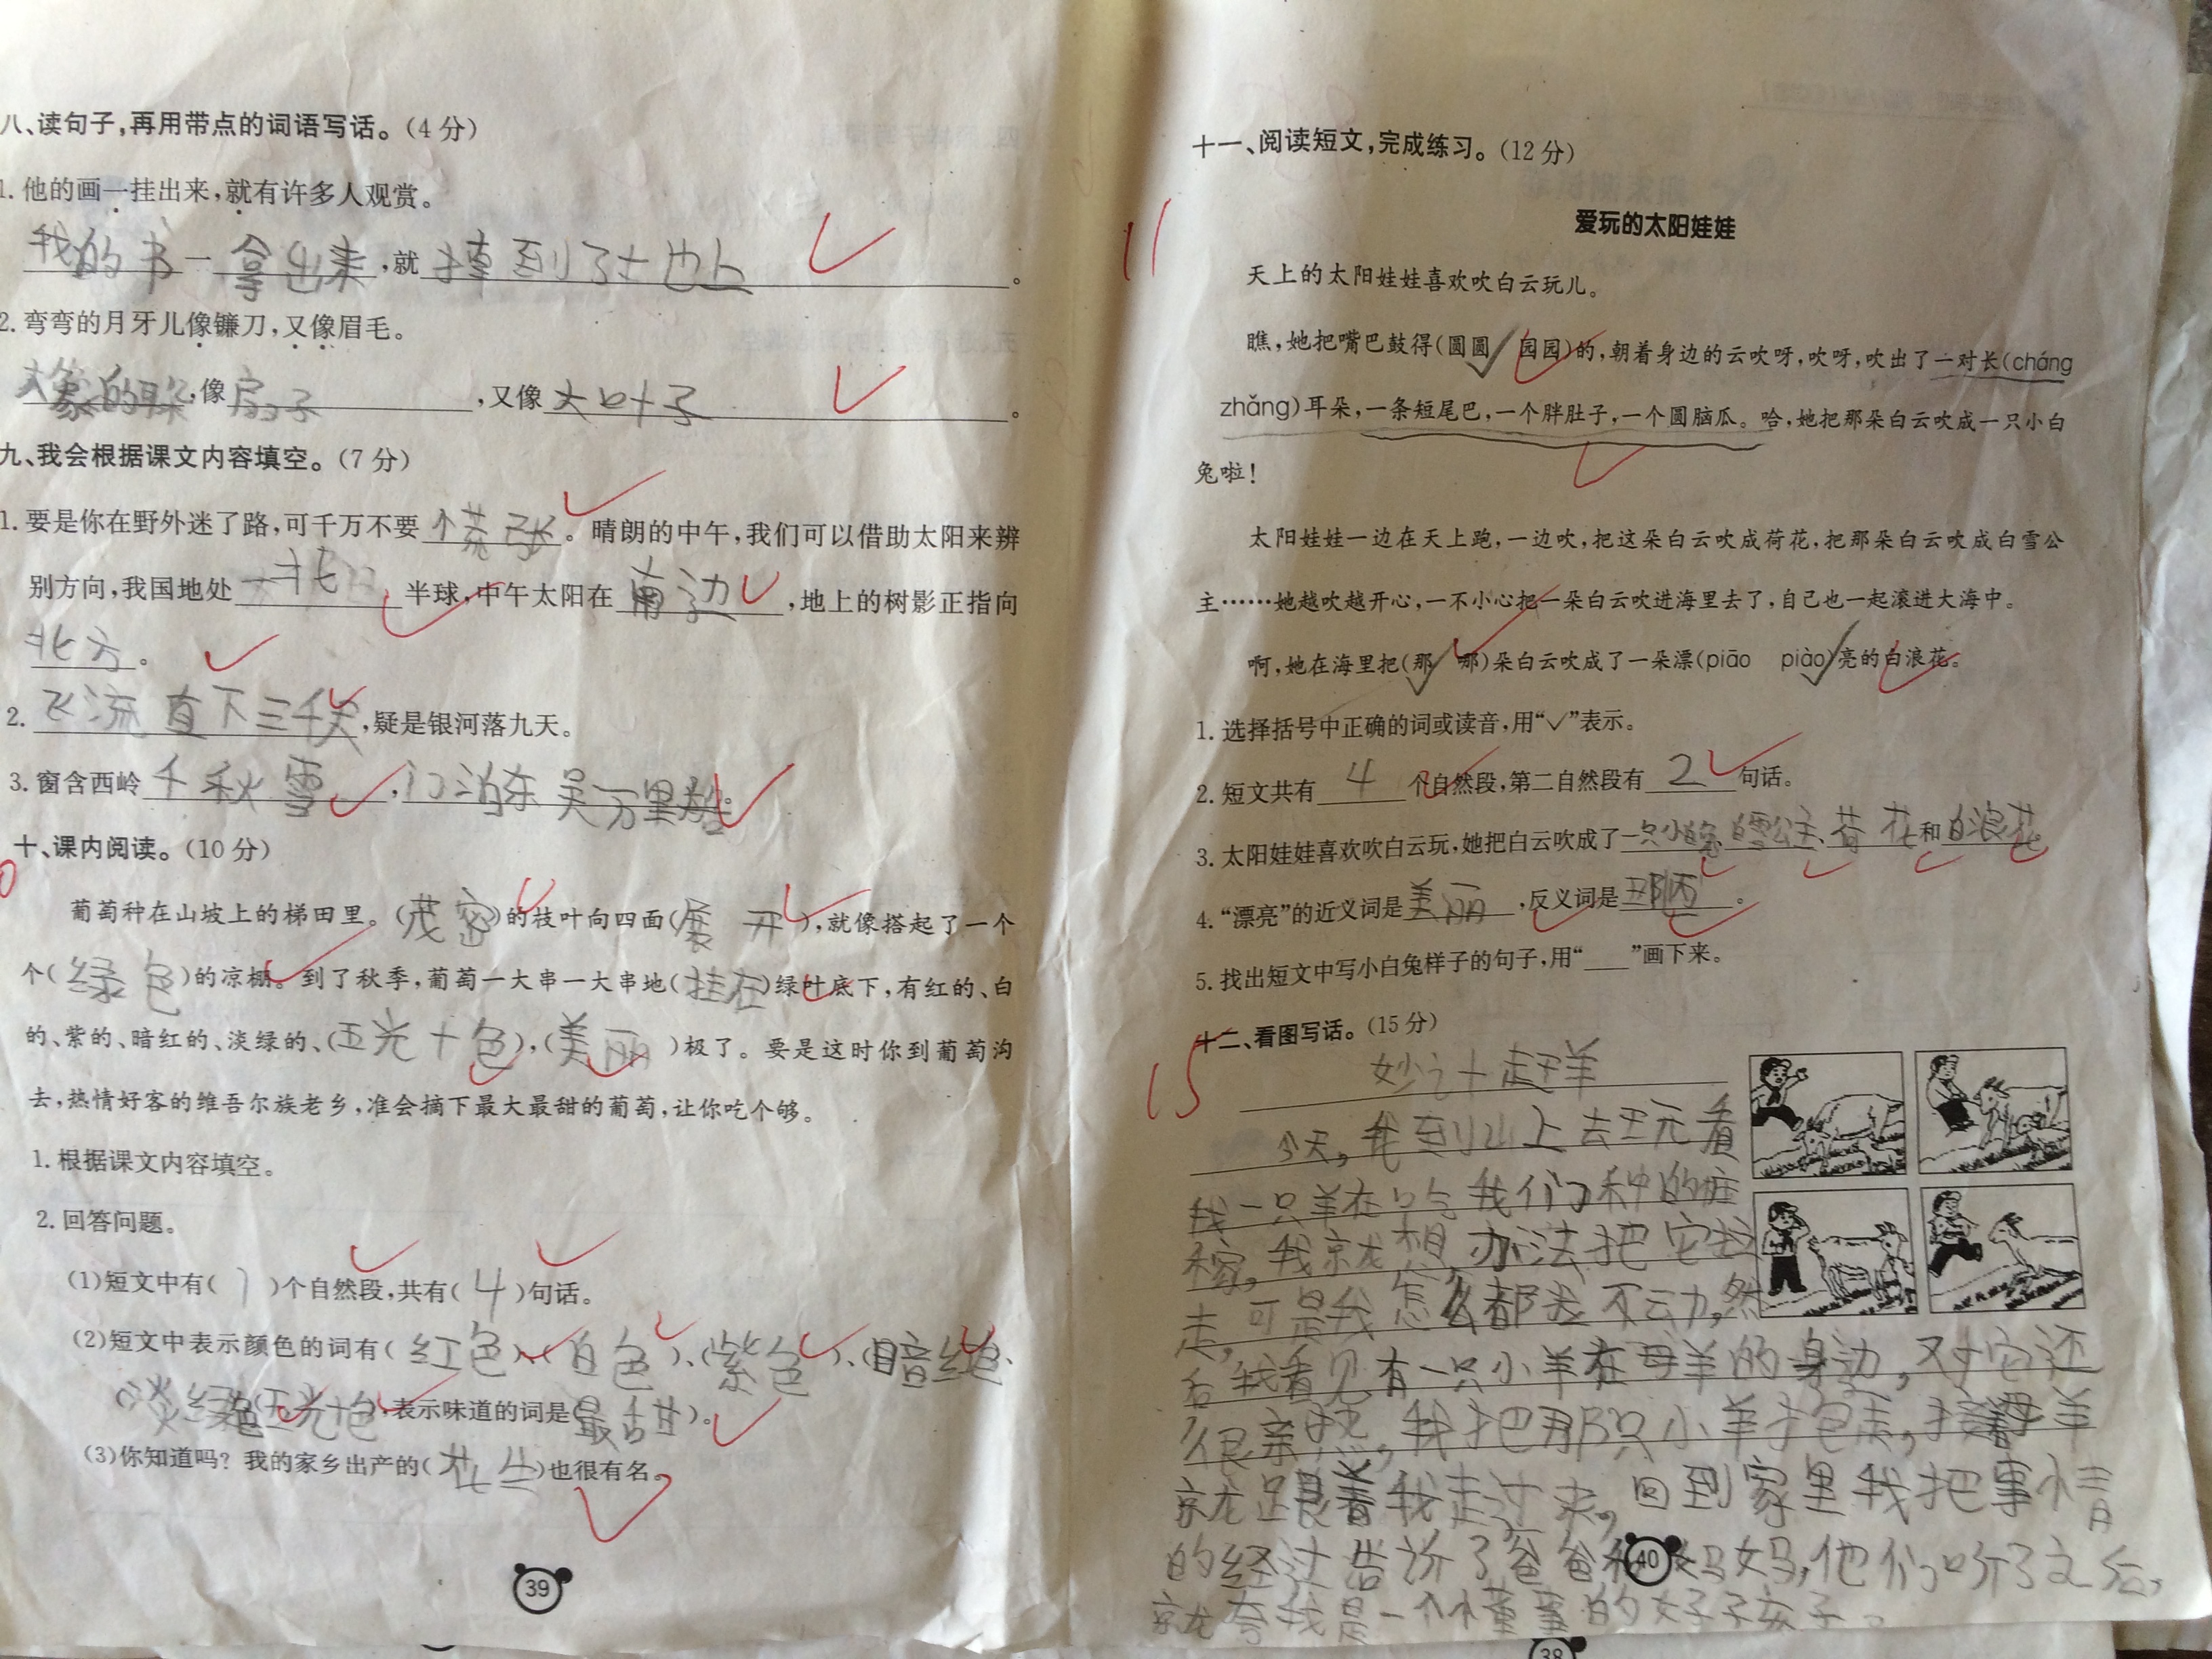 八、读句子,再用带点的词语写话。(4分)
1.他的画一挂出来,就有许多人观赏。
我的书一拿出来,就掉到了土也上。
2.弯弯的月牙儿像镰刀,又像眉毛。
大象的耳朵,像扇子,又像大叶子。
九、我会根据课文内容填空。(7分)
1.要是你在野外迷了路,可千万不要慌张。晴朗的中午,我们可以借助太阳来辨
别方向,我国地处北半球,中午太阳在南边,地上的树影正指向
北方。
2.飞流直下三千尺,疑是银河落九天。
3.窗含西岭千秋雪,门泊东吴万里船。
十、课内阅读。(10分)
葡萄种在山坡上的梯田里。(茂密)的枝叶向四面(展开),就像搭起了一个
个(绿色)的凉棚。到了秋季,葡萄一大串一大串地(挂在)绿叶底下,有红的、白
的、紫的、暗红的、淡绿的、(五光十色),(美丽)极了。要是这时你到葡萄沟
去,热情好客的维吾尔族老乡,准会摘下最大最甜的葡萄,让你吃个够。
1.根据课文内容填空。
2.回答问题。
(1)短文中有(1)个自然段,共有(4)句话。
(2)短文中表示颜色的词有(红色)、(白色)、(紫色)、(暗红色、
(淡绿色)(五光十色),表示味道的词是(最甜)。
(3)你知道吗?我的家乡出产的(花生)也很有名。
39
十一、阅读短文,完成练习。(12分)
11
爱玩的太阳娃娃
天上的太阳娃娃喜欢吹白云玩儿。
瞧,她把嘴巴鼓得(圆圆 园园)的,朝着身边的云吹呀,吹呀,吹出了一对长(cháng
zhǎng)耳朵,一条短尾巴,一个胖肚子,一个圆脑瓜。哈,她把那朵白云吹成一只小白
兔啦!
太阳娃娃一边在天上跑,一边吹,把这朵白云吹成荷花,把那朵白云吹成白雪公
主……她越吹越开心,一不小心把一朵白云吹进海里去了,自己也一起滚进大海中。
啊,她在海里把(那 哪)朵白云吹成了一朵漂(piāo piào)亮的白浪花。
1.选择括号中正确的词或读音,用“✓”表示。
2.短文共有4个自然段,第二自然段有2句话。
3.太阳娃娃喜欢吹白云玩,她把白云吹成了一只小白兔、白雪公主、荷花和白浪花。
4.“漂亮”的近义词是美丽,反义词是丑陋。
5.找出短文中写小白兔样子的句子,用“___”画下来。
十二、看图写话。(15分)
15
妙计赶羊
今天,我到山上去玩看
我一只羊在吃我们种的庄
稼,我就想办法把它拉
走,可是我怎么都拉不动,然
后我看见有一只小羊在母羊的身边,对它还
很亲热,我把那只小羊抱走,接着母羊
就跟着我走过来,回到家里我把事情
的经过告诉了爸爸和妈妈,他们听了之后,
就夸我是一个懂事的好孩子。
40
38